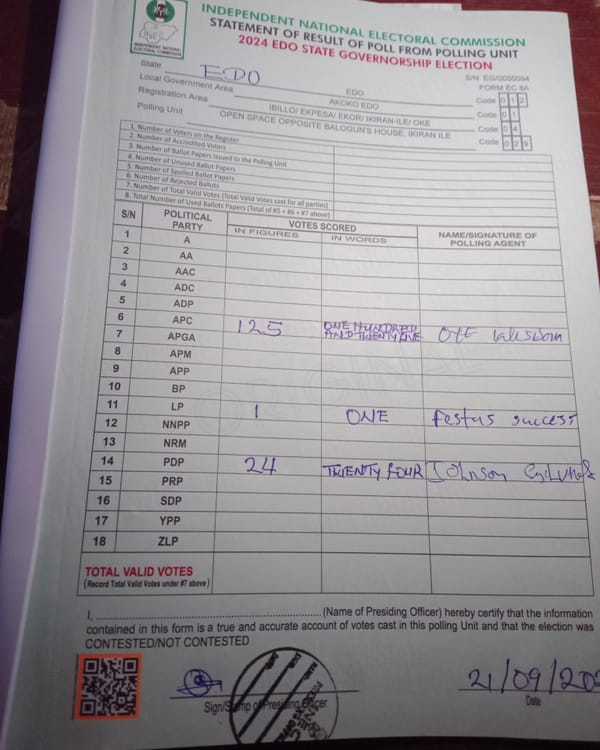 INDEPENDENT NATIONAL ELECTORAL COMMISSION
STATEMENT OF RESULT OF POLL FROM POLLING UNIT
2024 EDO STATE GOVERNORSHIP ELECTION
INEC
INDEPENDENT NATIONAL
ELECTORAL COMMISSION
S/N: EG/0000094
FORM EC 8A
State EDO
Local Government Area EDO Code 0 1 2
Registration Area AKOKO EDO Code 0 1
IBILLO/ EKPESA/ EKOR/ IKIRAN-ILE/ OKE Code 0 4
Polling Unit OPEN SPACE OPPOSITE BALOGUN'S HOUSE, IKIRAN ILE Code 0 2 9
1. Number of Voters on the Register
2. Number of Accredited Voters
3. Number of Ballot Papers Issued to the Polling Unit
4. Number of Unused Ballot Papers
5. Number of Spoiled Ballot Papers
6. Number of Rejected Ballots
7. Number of Total Valid Votes (Total Valid Votes cast for all parties)
8. Total Number of Used Ballots Papers (Total of #5 + #6 + #7 above)
S/N POLITICAL PARTY VOTES SCORED NAME/SIGNATURE OF POLLING AGENT
IN FIGURES IN WORDS
1 A
2 AA
3 AAC
4 ADC
5 ADP
6 APC 125 ONE HUNDRED AND TWENTY FIVE
7 APGA
8 APM
9 APP
10 BP
11 LP 1 ONE Festus success
12 NNPP
13 NRM
14 PDP 24 TWENTY FOUR Johnson
15 PRP
16 SDP
17 YPP
18 ZLP
TOTAL VALID VOTES
(Record Total Valid Votes under #7 above)
I, ............ (Name of Presiding Officer) hereby certify that the information
contained in this form is a true and accurate account of votes cast in this polling Unit and that the election was
CONTESTED/NOT CONTESTED
21/09/202
Sign/Stamp of Presiding Officer Date